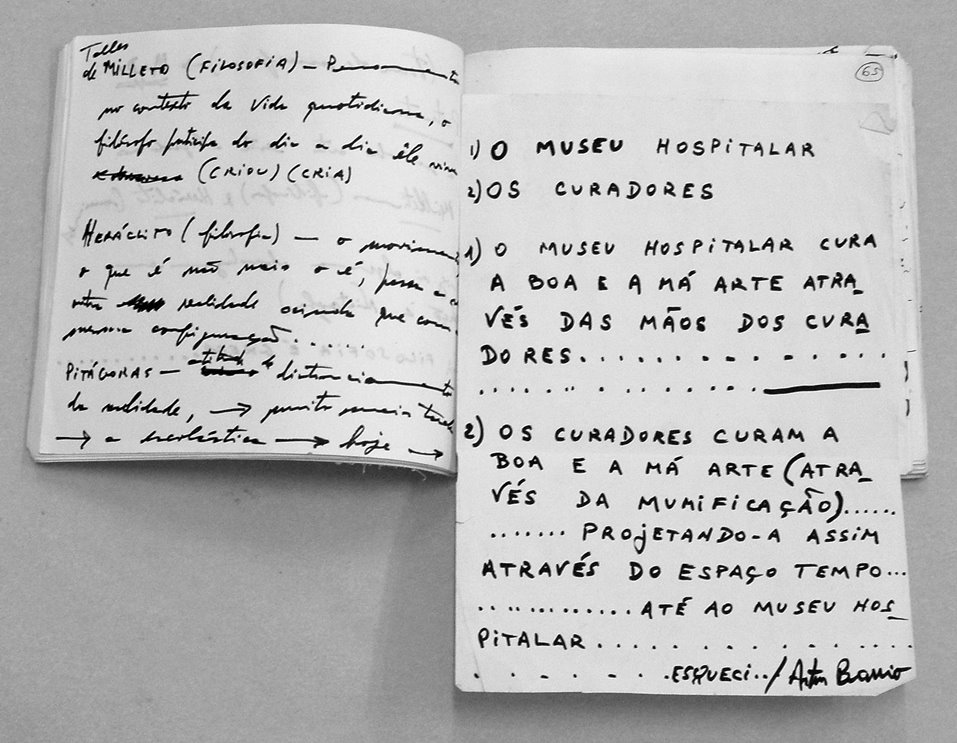 Talles
de MILLETO (FILOSOFIA) —
no contexto da vida quotidiana, o
filósofo participa do dia a dia êle
(CRIOU) (CRIA)
HERÁCLITO (filosofia) — o
o que é não mais o é, passa a
realidade ainda que com
mesma configuração......
PITÁGORAS — atitude de distanciamento
da realidade, → muito mais tarde
→ a escolástica → hoje →
65
1) O MUSEU HOSPITALAR
2) OS CURADORES
1) O MUSEU HOSPITALAR CURA
A BOA E A MÁ ARTE ATRA_
VÉS DAS MÃOS DOS CURA
DORES..................
..................
2) OS CURADORES CURAM A
BOA E A MÁ ARTE (ATRA_
VÉS DA MUMIFICAÇÃO)......
....... PROJETANDO-A ASSIM
ATRAVÉS DO ESPAÇO TEMPO...
.............. ATÉ AO MUSEU HOS_
PITALAR..................
. . . . . . .ESQUECI../ Artur Barrio